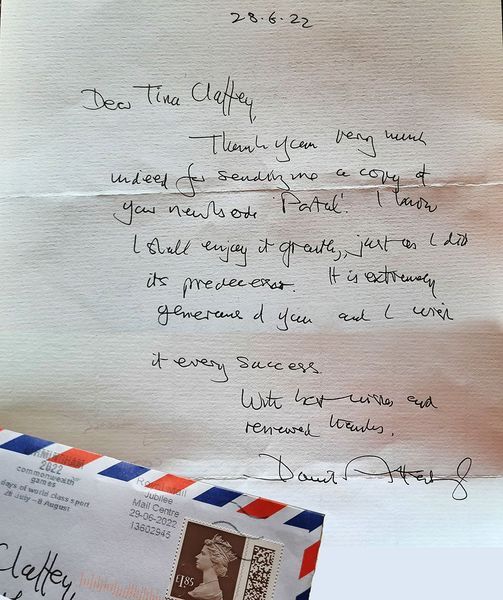 28.6.22
Dear Tina Claffey,
Thank you very much
indeed for sending me a copy of
your new book 'Portal'. I know
I shall enjoy it greatly, just as I did
its predecessor. It is extremely
generous of you and I wish
it every success.
With best wishes and
renewed thanks,
David Attenborough
BIRMINGHAM
2022
commonwealth
games
days of world class sport
28 July - 8 August
Royal Mail
Jubilee
Mail Centre
29-06-2022
13602945
£1.85
Claffey,